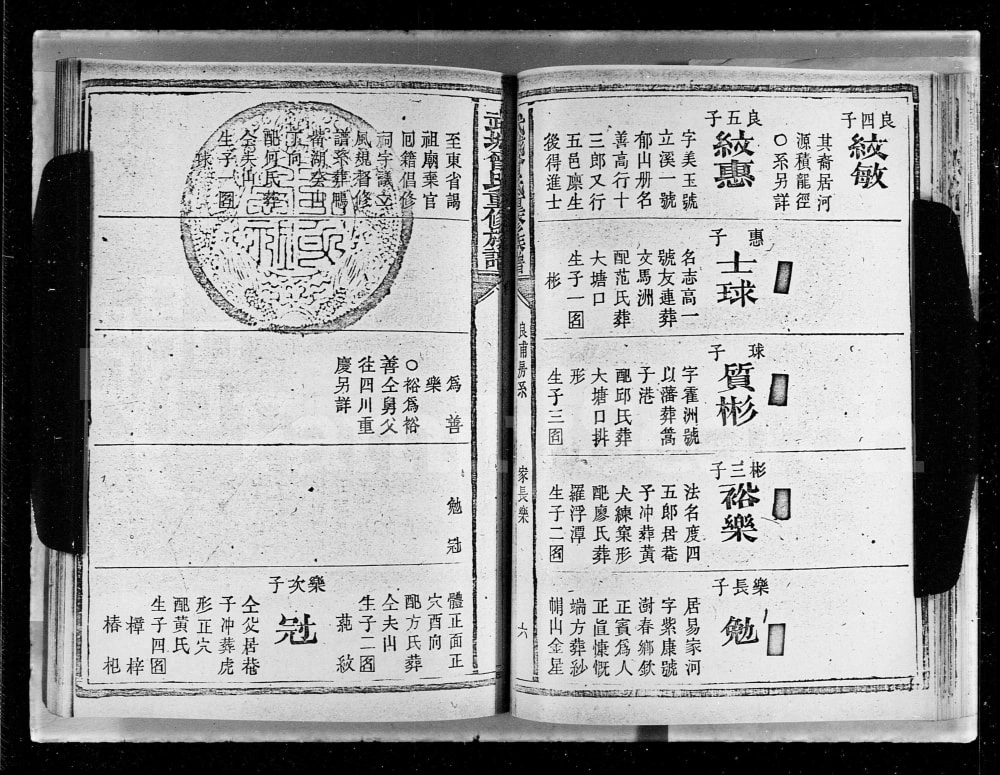 良四子
紋敏
其裔居河
源積龍徑
○系另詳
良五子
紋惠
字美玉號
立溪一號
郁山册名
善高行十
三郎又行
五邑廪生
後得進士
惠子
士球
名志高一
號友連葬
文馬洲
配范氏葬
大塘口
生子一圀
彬
球子
質彬
字霍洲號
以藩葬蒿
子港
配邱氏葬
大塘口拼
形
生子三圀
彬三子
裕樂
法名度四
五郎居菴
予冲葬黃
犬練窠形
配廖氏葬
羅浮潭
生子二圀
樂長子
勉
居易家河
字紫康號
澍春鄉飲
正賓為人
正直慷慨
端方葬紗
帽山金星
武城曾氏重修族譜
良甫房系
家長樂
六
至東省謁
祖廟棄官
囘籍倡修
祠宇議立
風規督修
譜系葬鵬
配何氏葬
生子一圀
球
為善
樂
○裕為裕
善仝舅父
徃四川重
慶另詳
勉
冠
體正面正
穴酉向
配方氏葬
仝夫山
生子二圀
菀
樂次子
冠
仝父居菴
子冲葬虎
形正穴
配黃氏
生子四圀
樟 梓
椿 杞